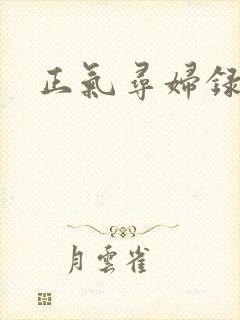 正氣尋婦錄
月雲雀